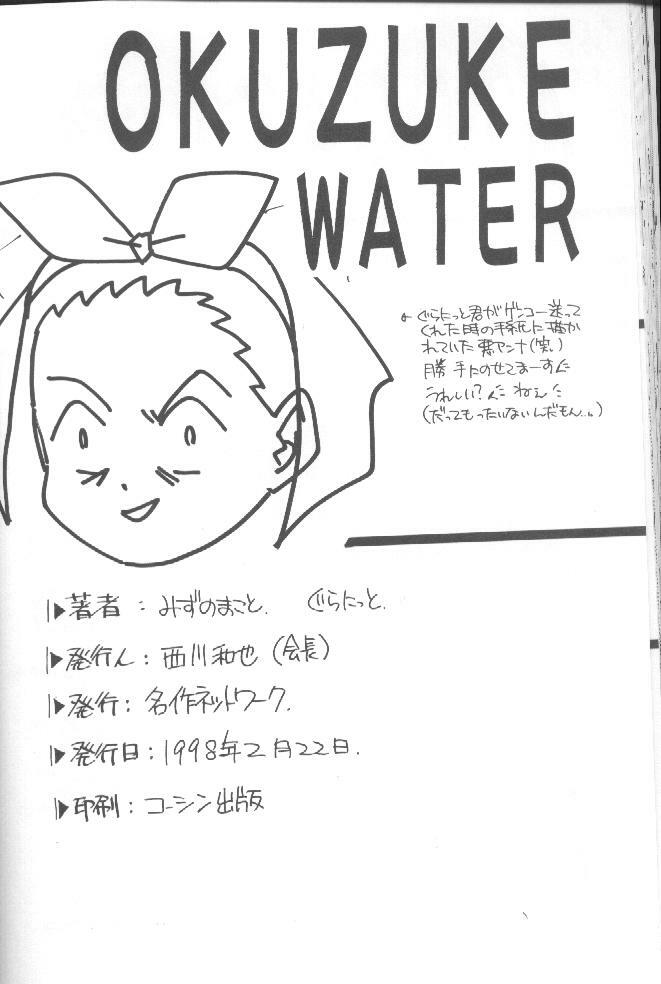 OKUZUKE
WATER
← ぐらにっと君がゲンコー送って
くれた時の手紙に描か
れていた悪ヤンナ(笑。)
勝手にのせてまーすんだ
うれしい?んだ ねぇんだ
(だってもったいないんだもん...。)
著者:みずのまこと. ぐらにっと.
発行人:西川和也(会長)
発行:名作ネットワーク.
発行日:1998年2月22日.
印刷:コーシン出版